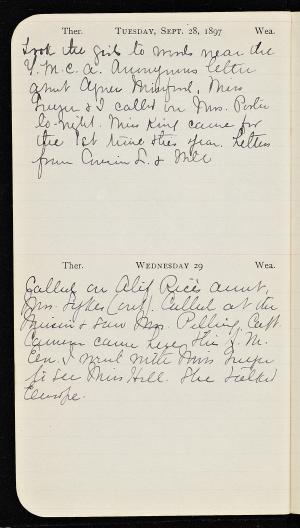 Ther. TUESDAY, SEPT. 28, 1897 Wea.
Took the girls to woods near the
Y. M. C. A. Anonymous letter
about Agnes Miss
& I called on Mrs.
to-night. Miss King came for
the 1st time this year. Letters
from Cousin L. & Will
Ther. WEDNESDAY 29 Wea.
Called on Alif Rice's aunt,
Mrs. Sykes (out). Called at the
& saw Mrs. Pilling. Capt
came here this P. M.
Eve. I went with Miss
to see Miss Hill. She talked
Europe.